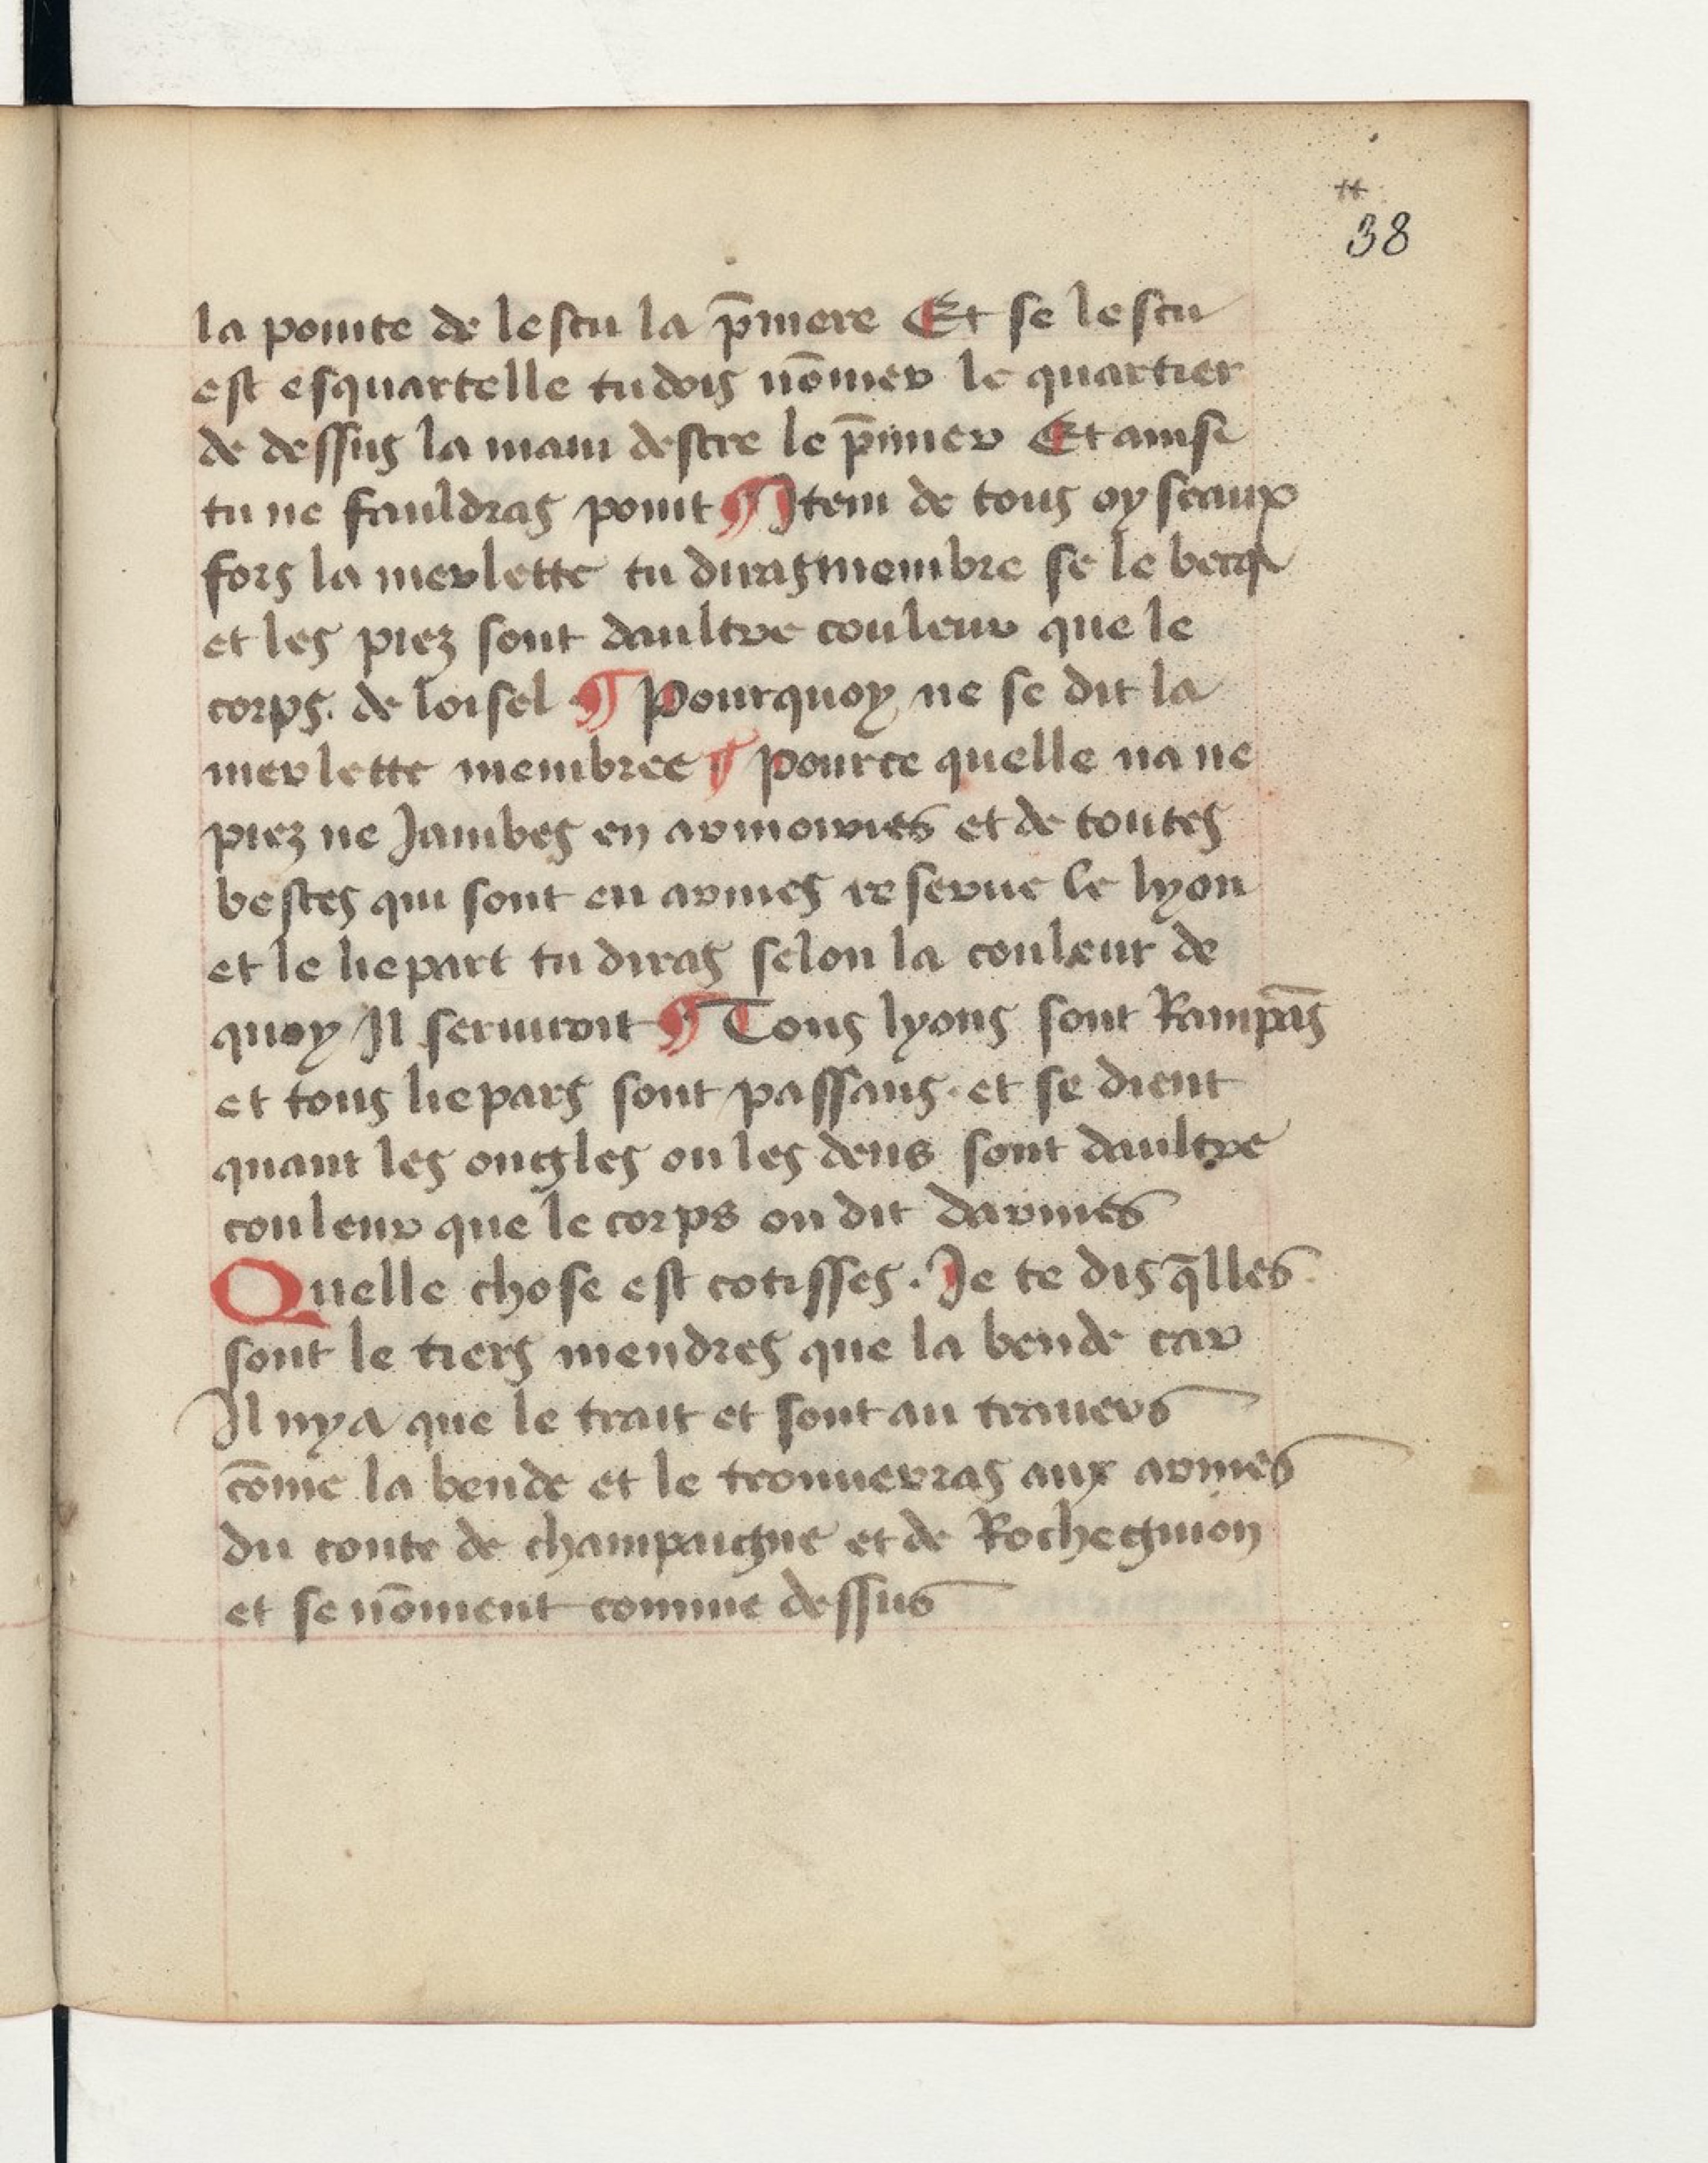 38
la pointe de lescu la p̄miere Et se lescu
est esquartelle tu dois nōmer le quartier
de dessus la main destre le p̄mier Et ainsi
tu ne fauldras point ¶ Item de tous oyseaux
fors la merlette tu diras membre se le becq
et les piez sont daultre couleur que le
corps. de loisel ¶ Pourquoy ne se dit la
merlette membree ¶ Pource quelle na ne
piez ne Jambes en armoiries et de toutes
bestes qui sont en armes reserue le lyon
et le liepart tu diras selon la couleur de
quoy Il seruiroit ¶ Tous lyons sont Rampās
et tous liepars sont passans. et se dient
quant les ongles ou les dens sont daultre
couleur que le corps on dit darmes
Quelle chose est cotisses. Je te dis q̄lles
sont le tiers mendres que la bende car
Il ny a que le trait et sont au trauers
cōme la bende et le trouuerras aux armes
du conte de champaigne et de Rocheguion
et se nōment comme dessus